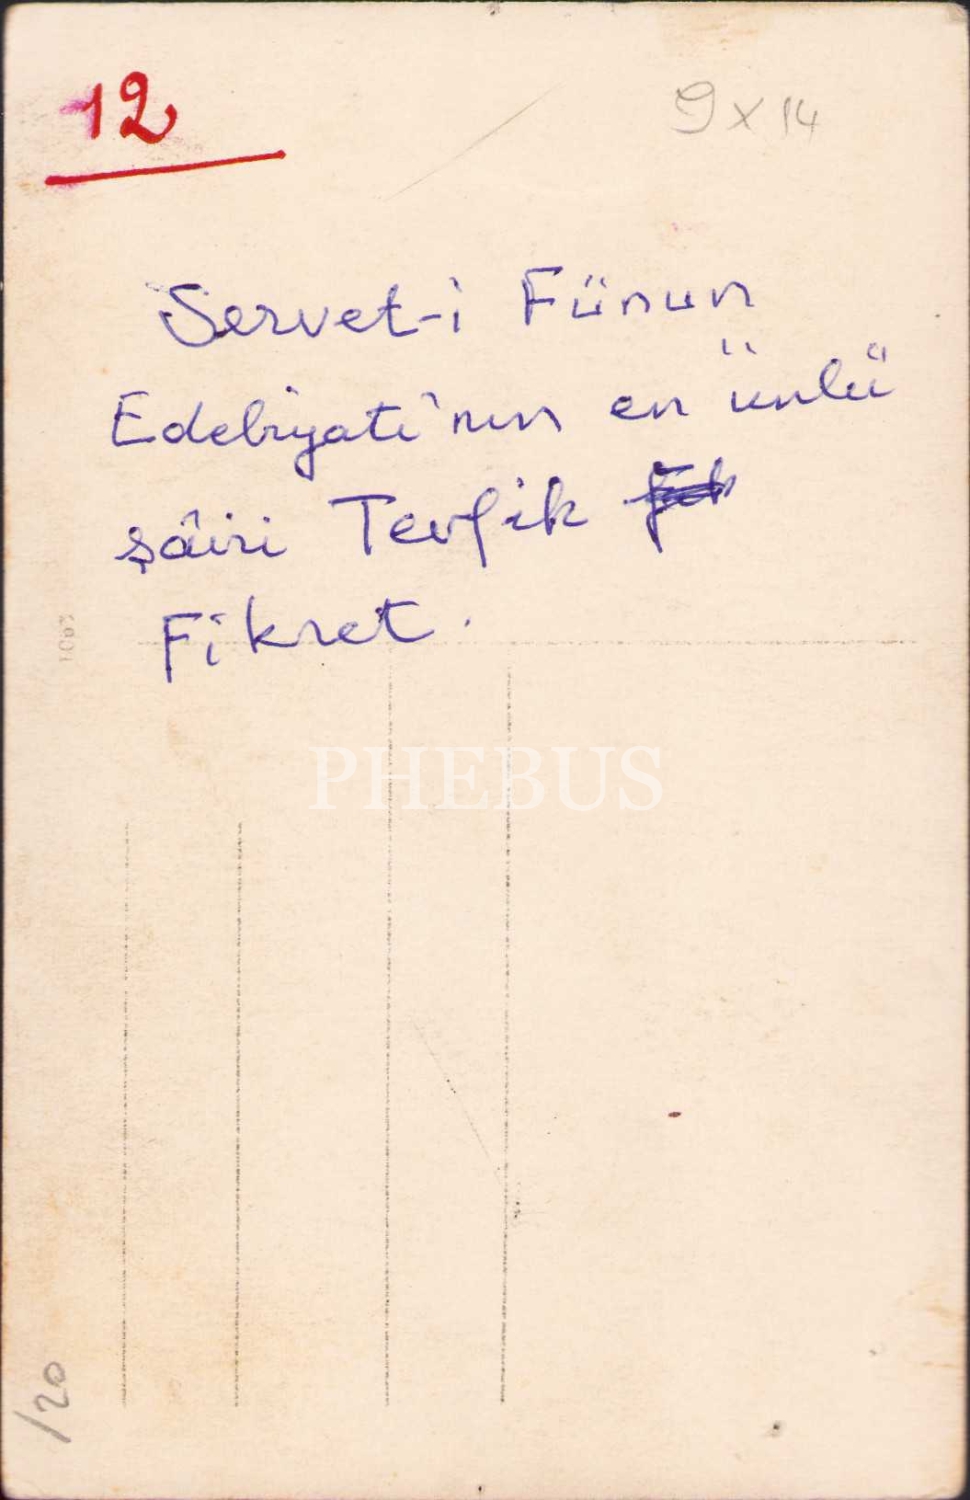 12
9 x 14
Servet-i Fünun
Edebiyatı'nın en ünlü
şâiri Tevfik
Fikret.
PHEBUS
/20